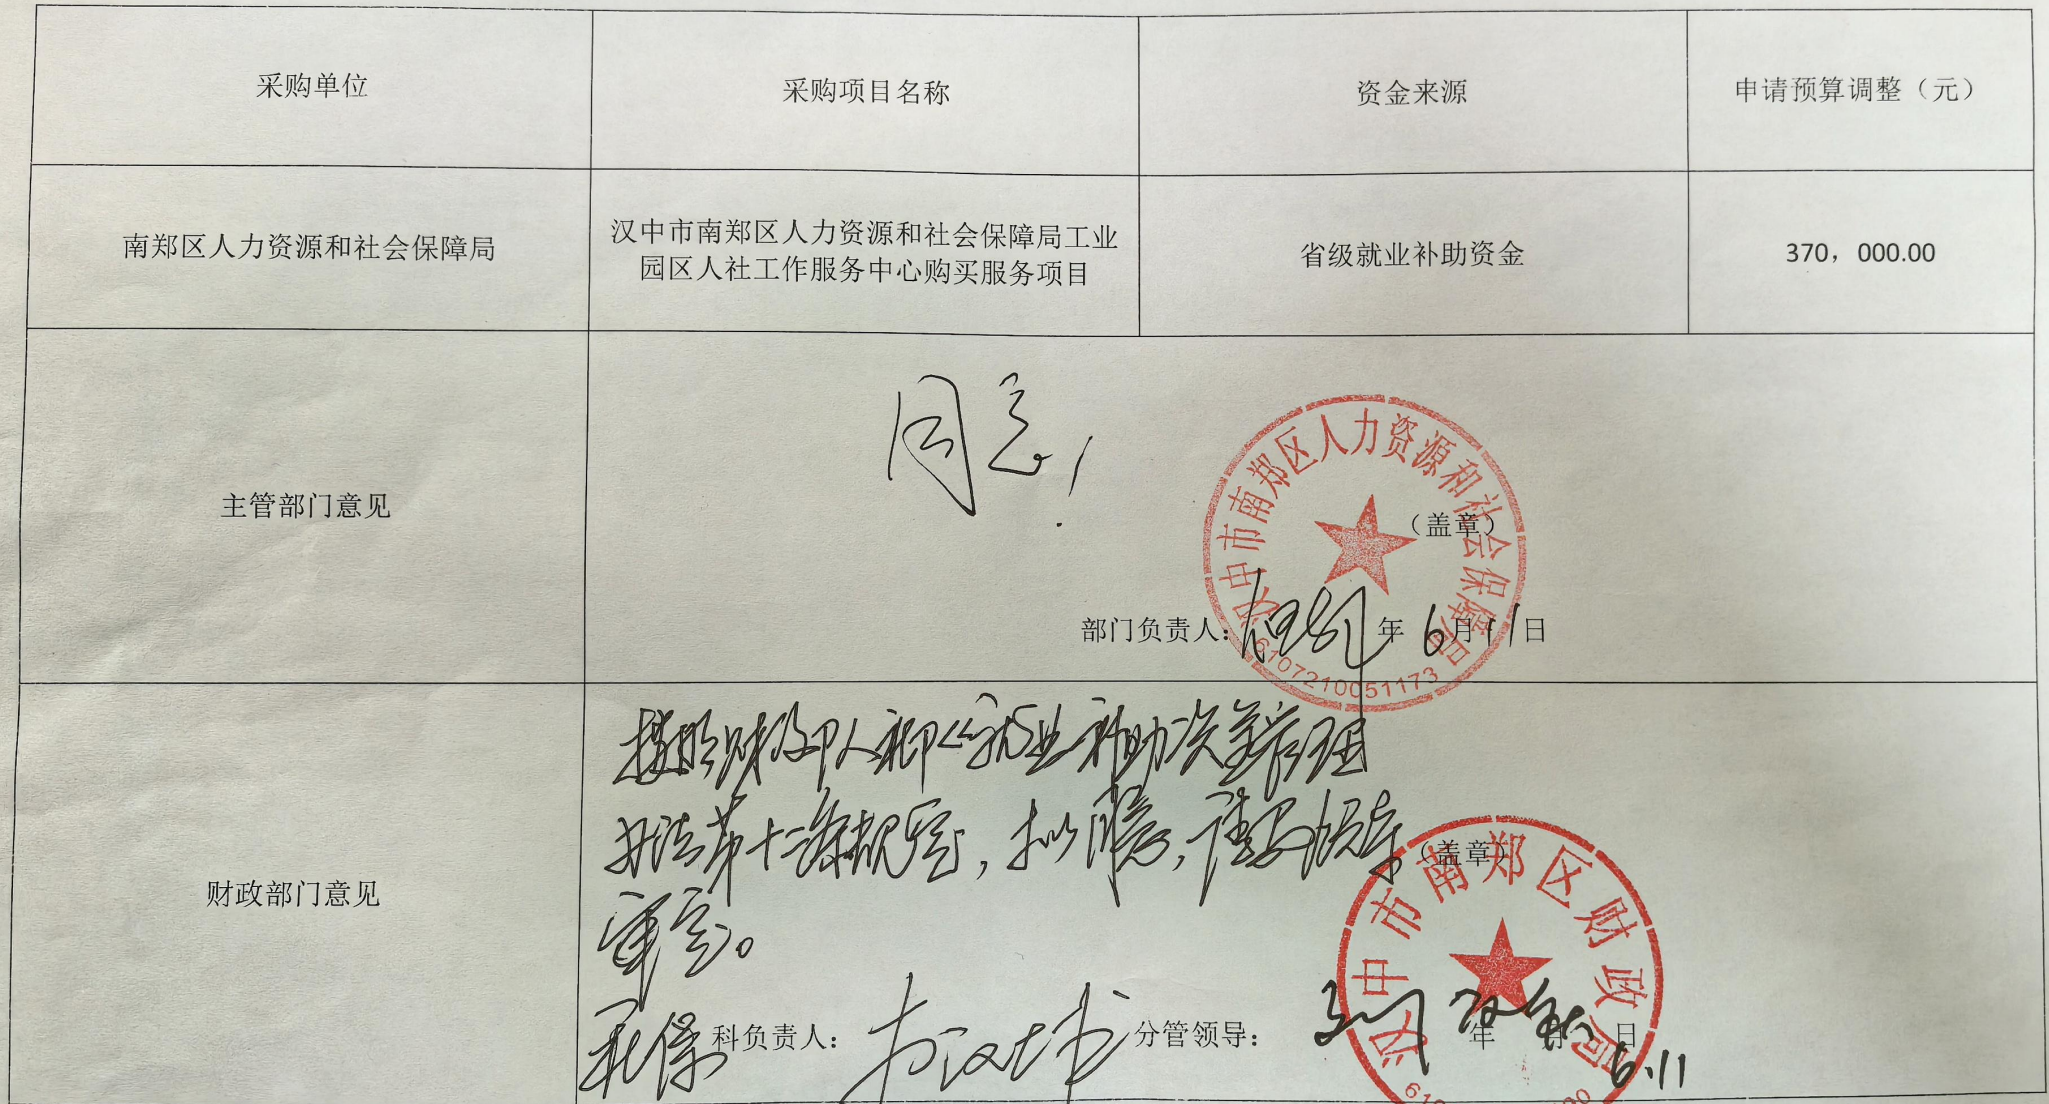 采购单位
采购项目名称
资金来源
申请预算调整（元）
南郑区人力资源和社会保障局
汉中市南郑区人力资源和社会保障局工业
园区人社工作服务中心购买服务项目
省级就业补助资金
370，000.00
主管部门意见
同意！
汉中市南郑区人力资源和社会保障局
（盖章）
部门负责人：
年 6月11日
6107210051173
财政部门意见
按照财政部人社部《就业补助资金管理
办法第十二条规定，拟同意，请领导
审定。
（盖章）
汉中市南郑区财政局
社保科负责人：
分管领导：
年 月 日
6.11